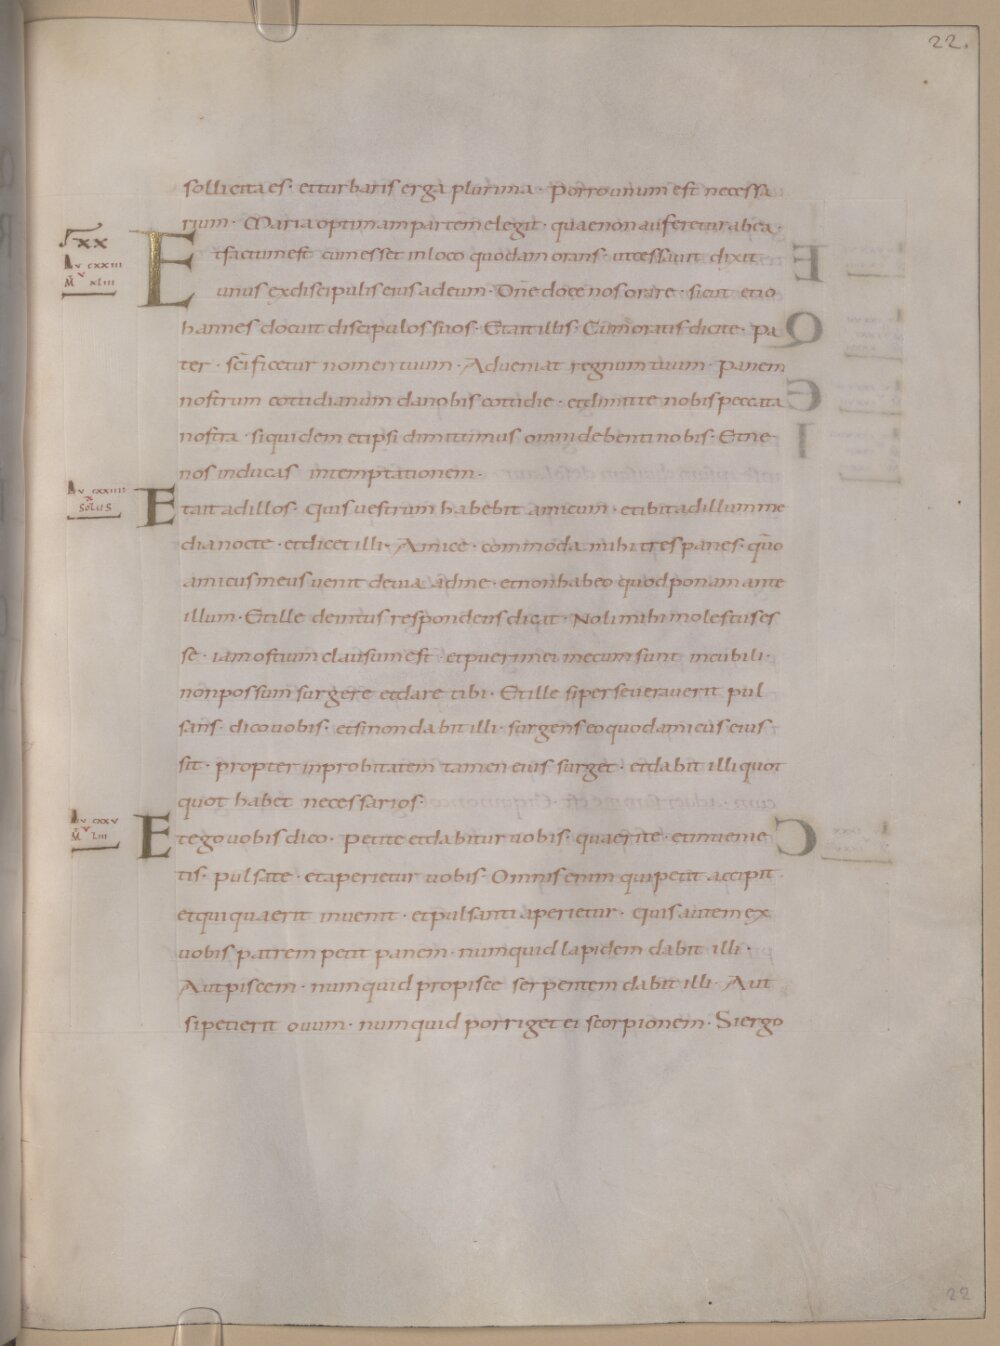 22.
sollicita es· et turbaris erga plurima· Porro unum est necessa
rium· Maria optimam partem elegit· quae non auferetur ab ea·
XX
Lv CXXIII
M XLIII
Et factum est cum esset in loco quodam orans· ut cessavit dixit
unus ex discipulis eius ad eum· Dn̄e doce nos orare· sicut et io
hannes docuit discipulos suos· Et ait illis· Cum oratis dicite· Pa
ter· sc̄ificetur nomen tuum· Adveniat regnum tuum· Panem
nostrum cottidianum da nobis cottidie· et dimitte nobis peccata
nostra· siquidem et ipsi dimittimus omni debenti nobis· Et ne
nos inducas in temptationem·
Lv CXXIIII
X
SOLUS
Et ait ad illos· Quis vestrum habebit amicum· et ibit ad illum me
dia nocte· et dicet illi· Amice· commoda mihi tres panes· qm̄o
amicus meus venit de via ad me· et non habeo quod ponam ante
illum· Et ille deintus respondens dicat· Noli mihi molestus es
se· iam ostium clausum est· et pueri mei mecum sunt in cubili·
non possum surgere et dare tibi· Et ille si perseveraverit pul
sans· dico vobis· et si non dabit illi· surgens eo quod amicus eius
sit· propter inprobitatem tamen eius surget· et dabit illi quot
quot habet necessarios·
Lv CXXV
M LIII
Et ego vobis dico· Petite et dabitur vobis· quaerite· et invenie
tis· pulsate· et aperietur vobis· Omnis enim qui petit accipit·
et qui quaerit invenit· et pulsanti aperietur· Quis autem ex
vobis patrem petit panem· numquid lapidem dabit illi·
Aut piscem· numquid pro pisce serpentem dabit illi· Aut
si petierit ovum· numquid porriget ei scorpionem· Si ergo
22